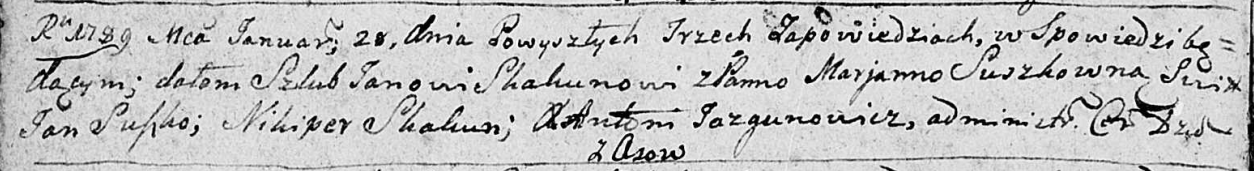 Rᵘ 1789 Mcả Januarͥ; 28, dnia Powyszłych Trzech Zapowiedziach, w Spowiedzi bę=
dącym; dałem Szlub Janowi Skakunowi z Panno Marjanno Suszkowna Swi
Jan Suszko; Nikiper Skakun; X Antoni Jazgunowicz, administr. Cr
z Osow